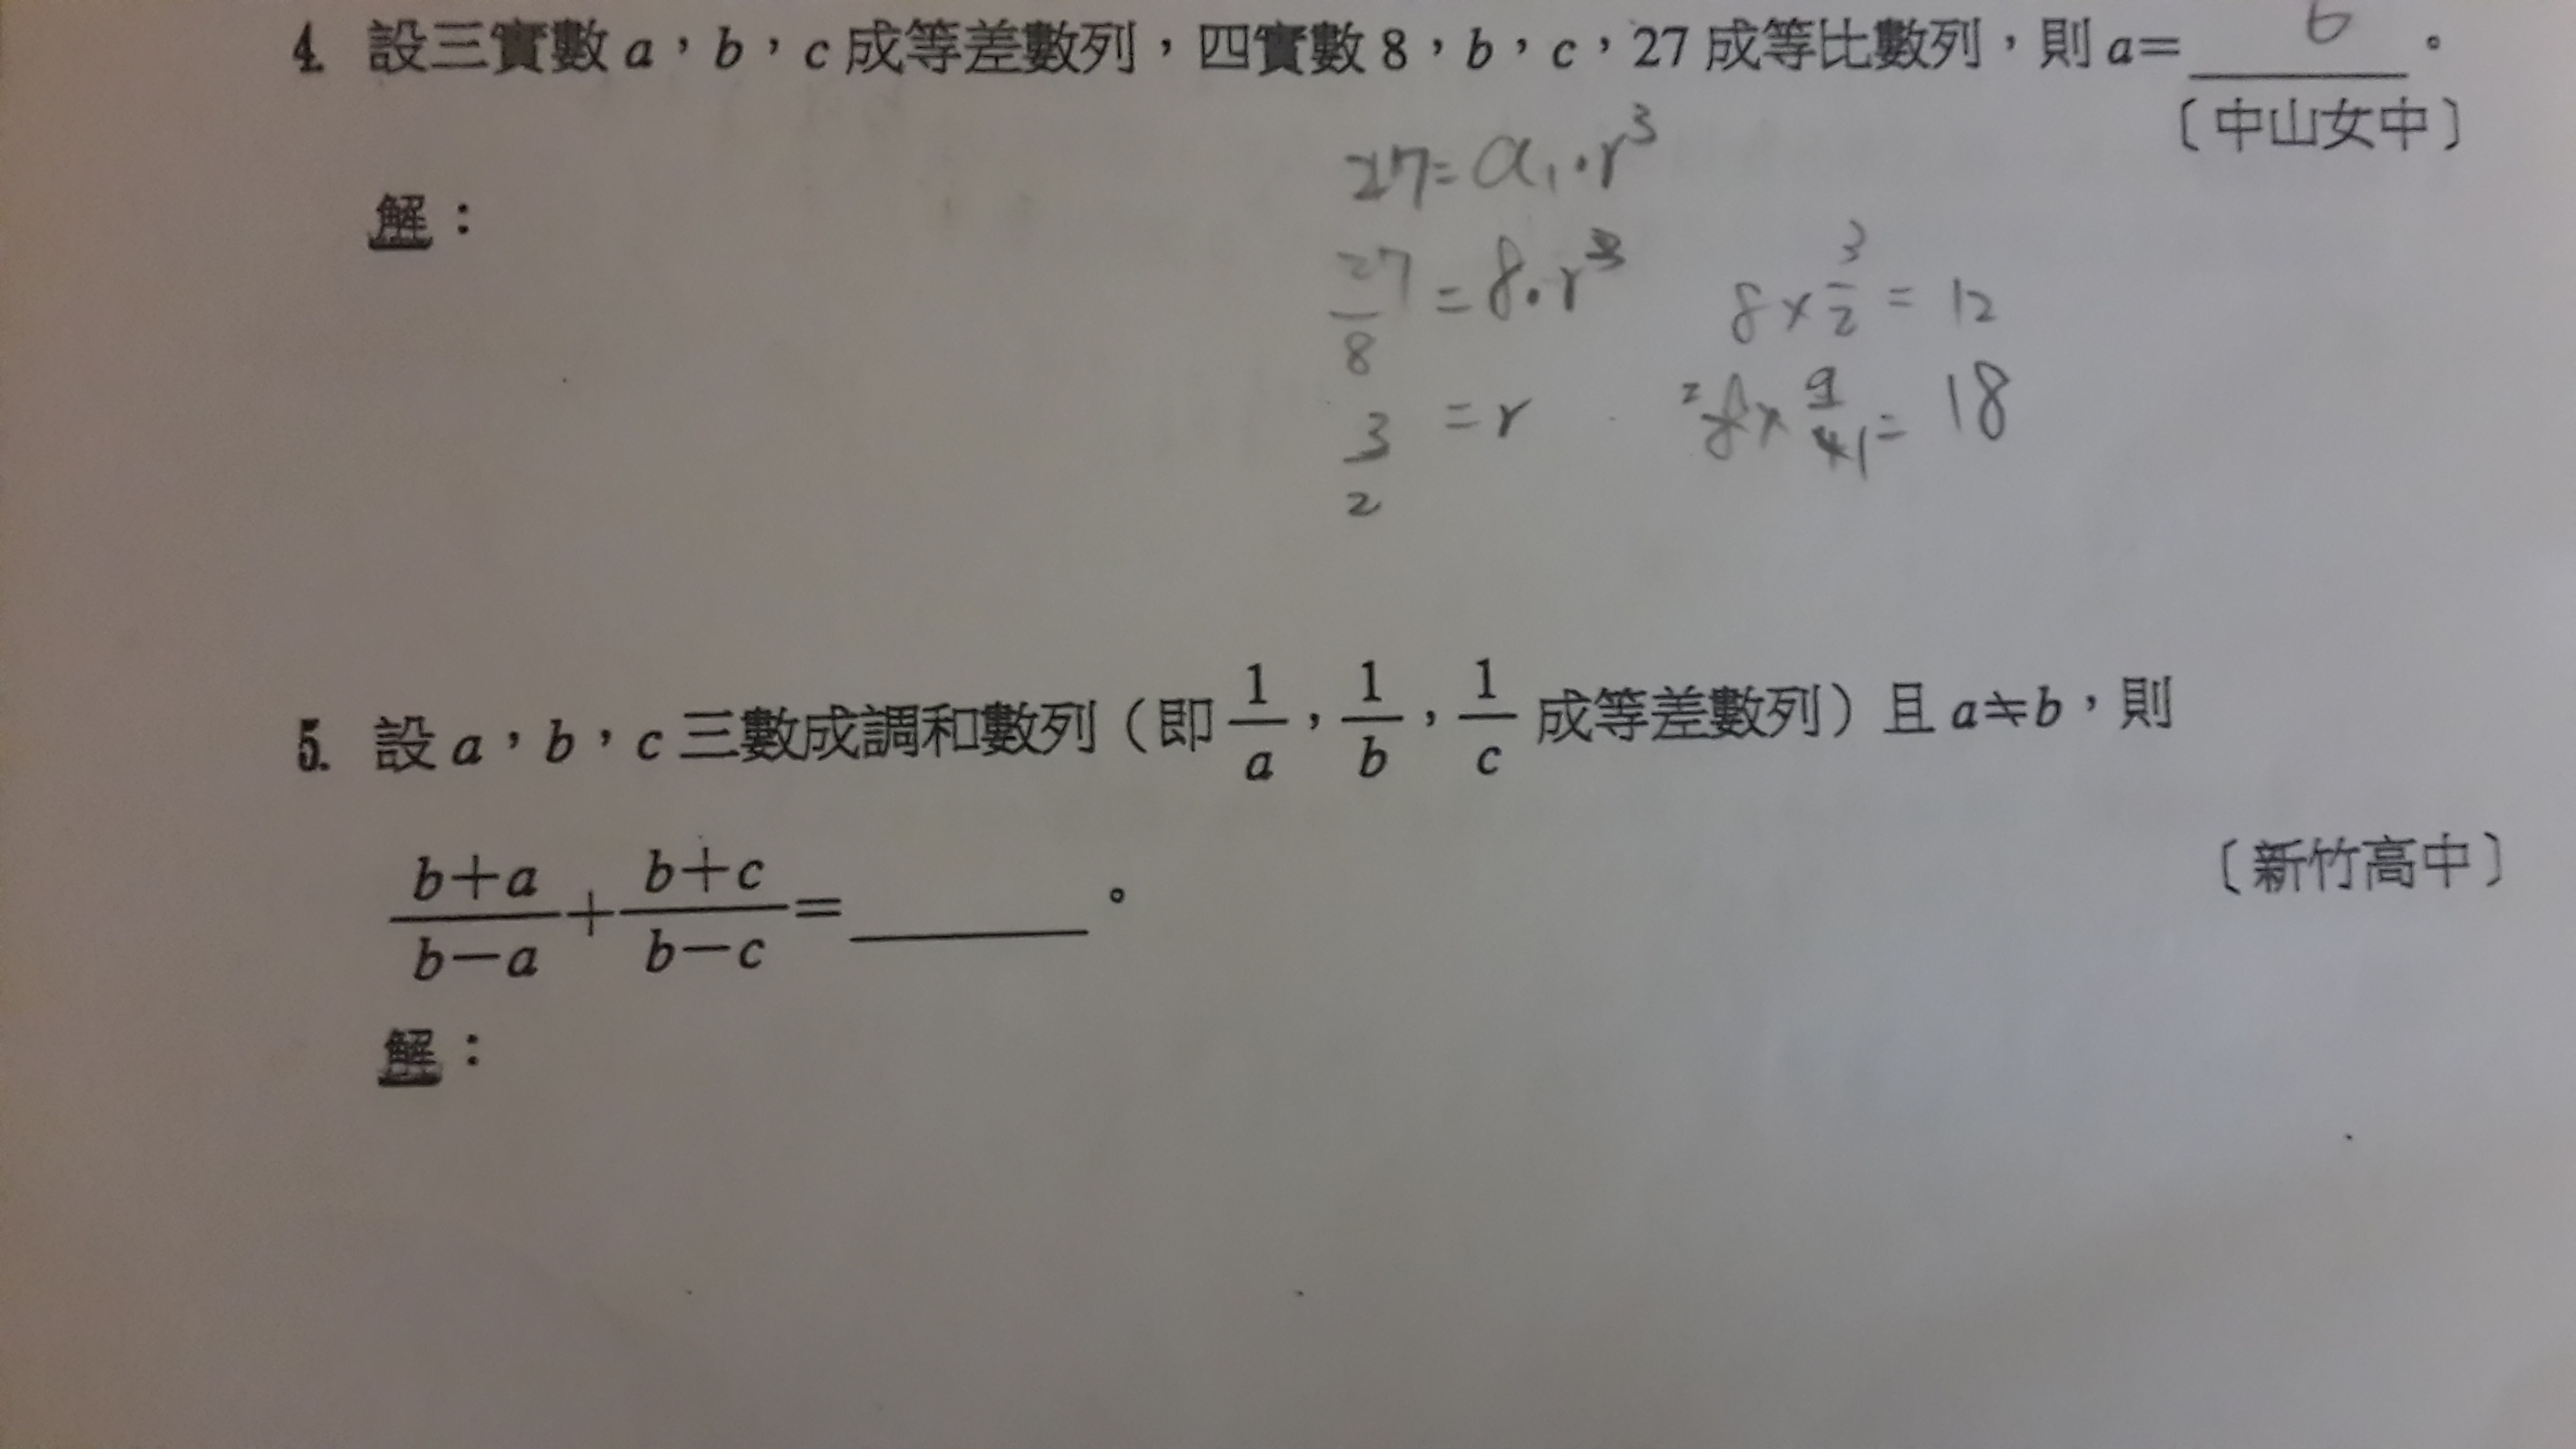 4. 設三實數 a，b，c 成等差數列，四實數 8，b，c，27 成等比數列，則 a= 6 。
〔中山女中〕
解：
27=a₁·r³
27/8 = 8·r³
3/2 = r
8×3/2=12
²8×9/4 1=18
5. 設 a，b，c 三數成調和數列（即 1/a，1/b，1/c 成等差數列）且 a≒b，則
(b+a)/(b−a)+(b+c)/(b−c)=______。
〔新竹高中〕
解：